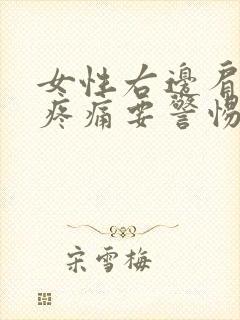 女性右邊肩
疼痛要警惕
宋雪梅